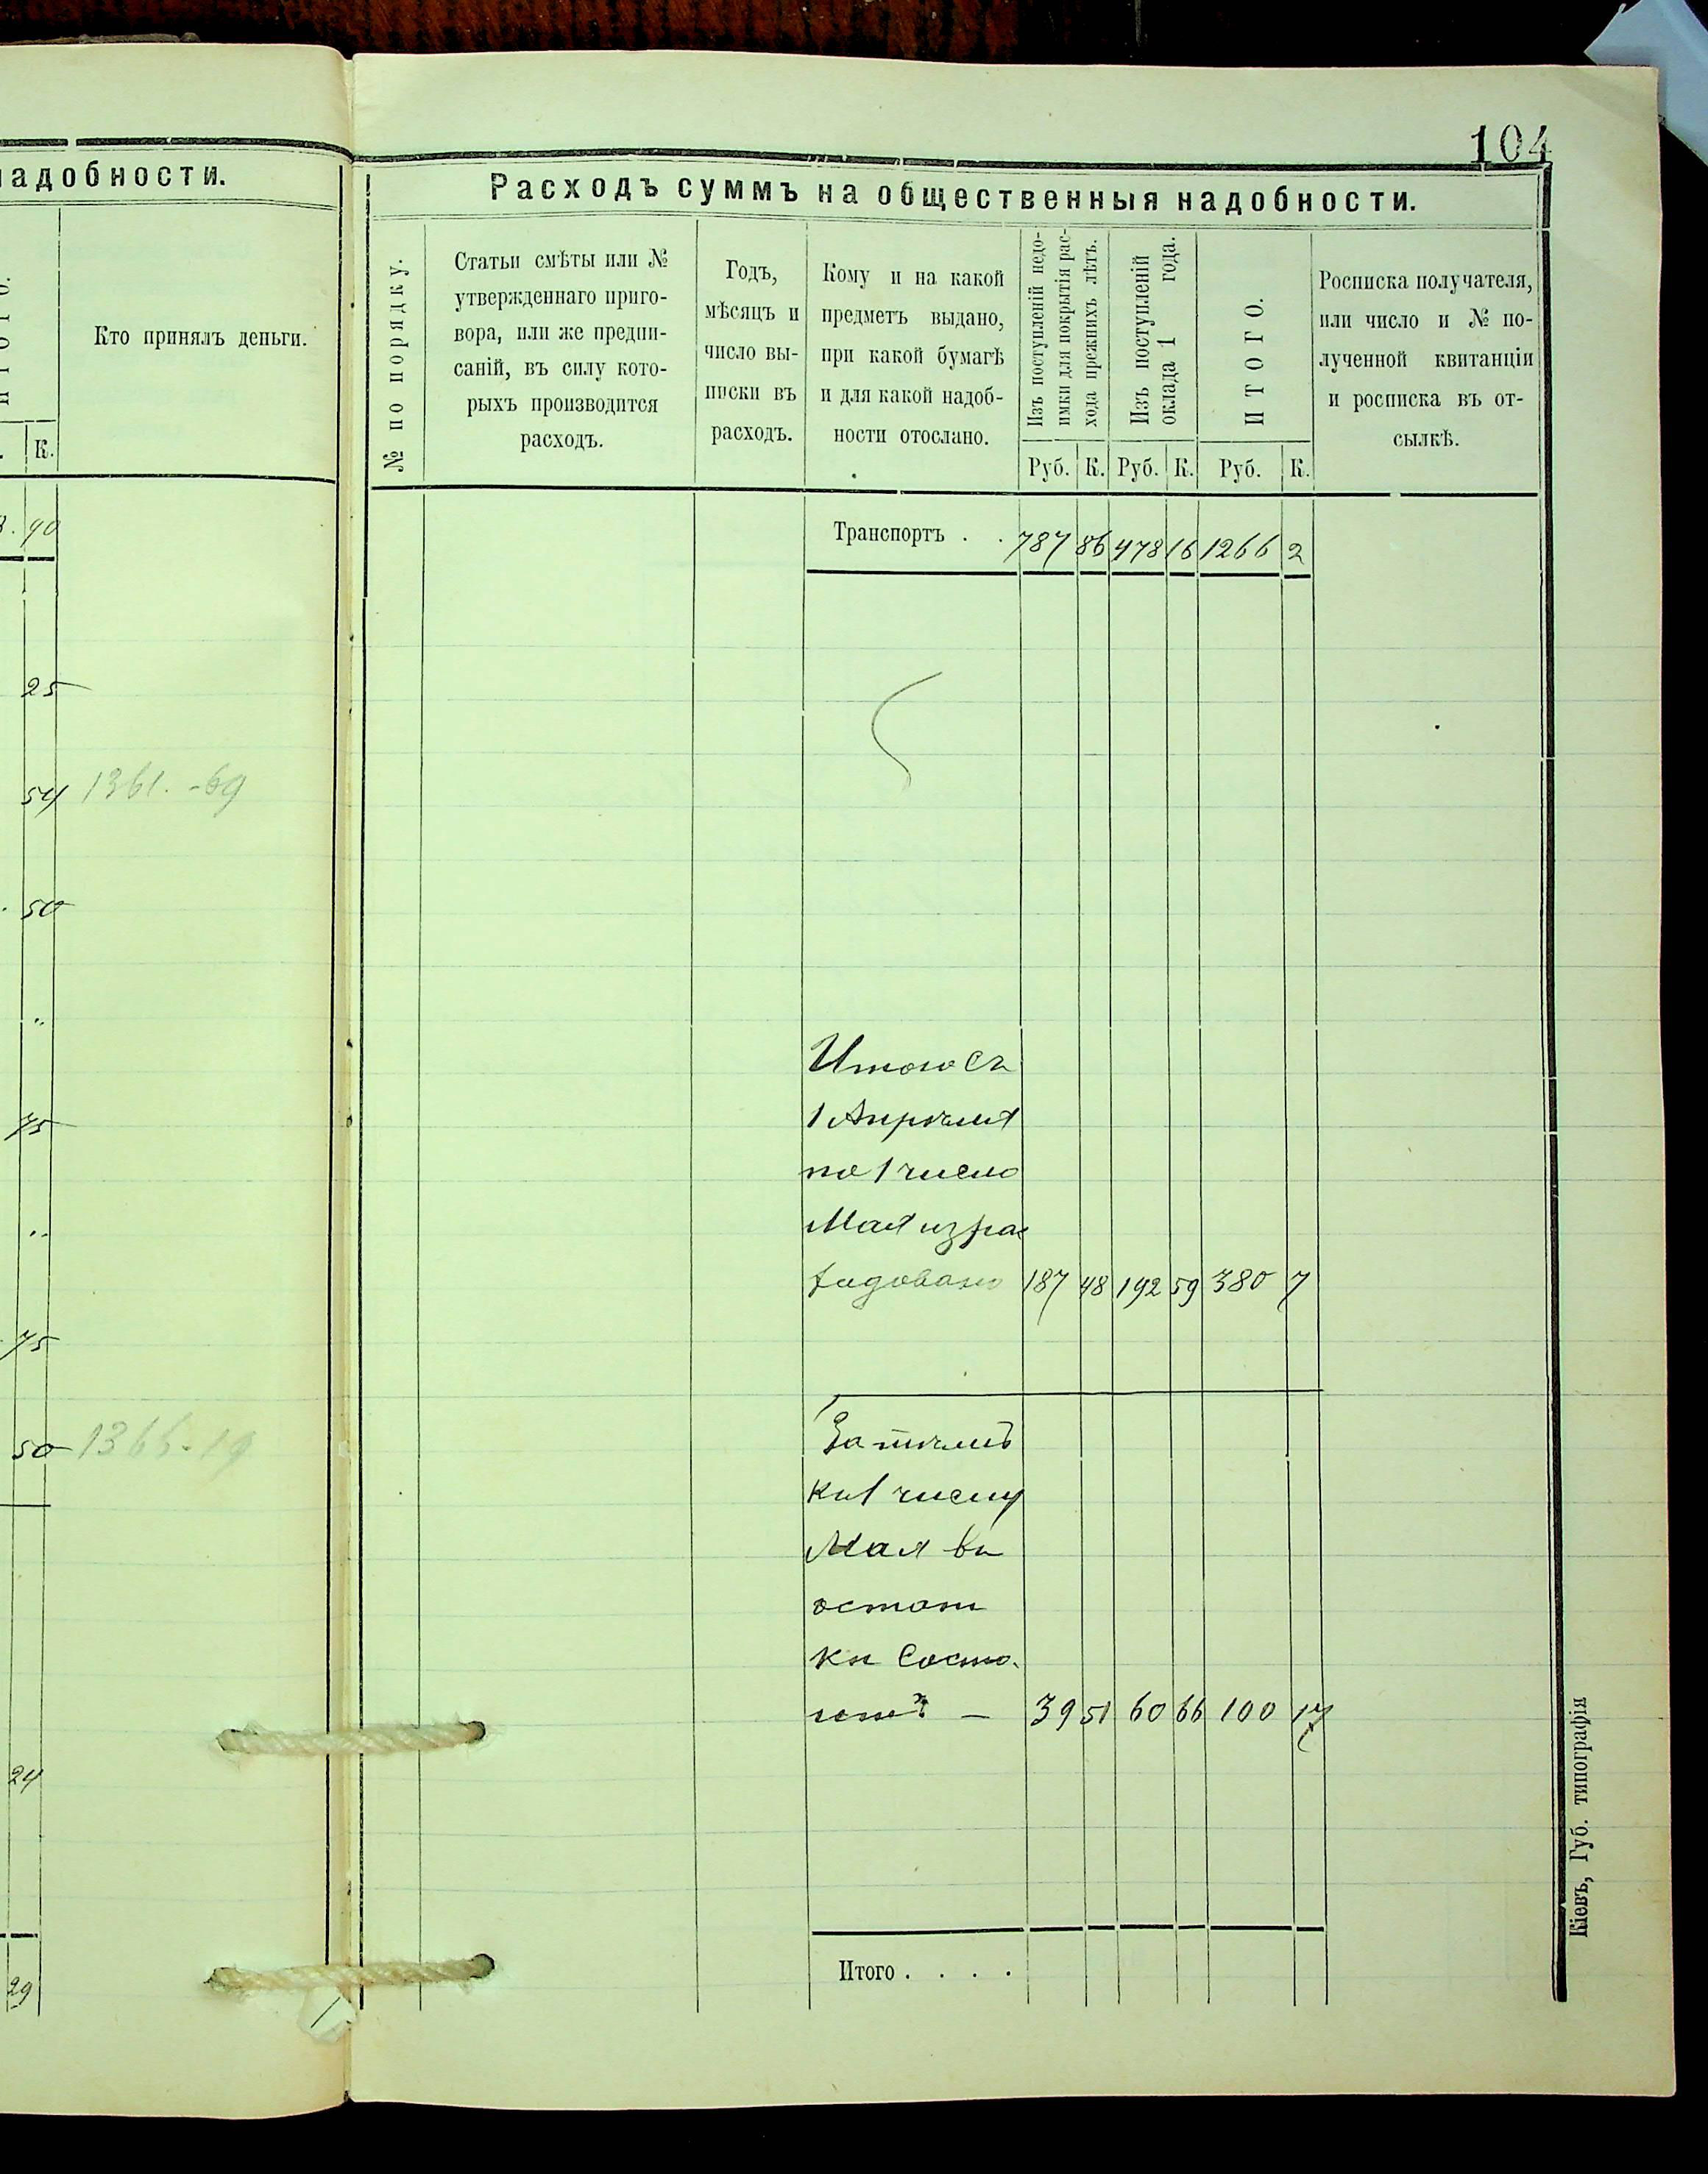 104
адобности.
О Г О.
Кто принялъ деньги.
К.
90
25
54 1361.-69
50
75
75
50 1366-19
24
29
Расходъ суммъ на общественныя надобности.
№ по порядку.
Статьи смѣты или №
утвержденнаго приго-
вора, или же предпи-
саній, въ силу кото-
рыхъ производится
расходъ.
Годъ,
мѣсяцъ и
число вы-
писки въ
расходъ.
Кому и на какой
предметъ выдано,
при какой бумагѣ
и для какой надоб-
ности отослано.
Изъ поступленій недо-
имки для покрытія рас-
хода прежнихъ лѣтъ.
Изъ поступленій
оклада 1 года.
ИТОГО.
Росписка получателя,
или число и № по-
лученной квитанціи
и росписка въ от-
сылкѣ.
Руб. К. Руб. К. Руб. К.
Транспортъ . . 787 86 478 16 1266 2
Итого съ
1 Апрѣля
по 1 число
Мая израс
ходовано 187 48 192 59 380 7
За тѣмъ
къ 1 числу
Мая въ
остат
кѣ состо.
итъ — 39 51 60 66 100 17
Итого . . . .
Кіевъ, Губ. типографія